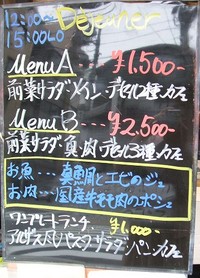 12:00 Déjeuner
15:00LO
Menu A --- ¥1,500-
前菜サラダ メイン デセル2種 カフェ
Menu B --- ¥2,500-
前菜 サラダ 魚 肉 デセル3種 カフェ
お魚--- 真鯛とエビのジュ
お肉--- 国産牛モモ肉のポシェ
ワンプレートランチ ¥1,000-
サラダ・パン・カフェ